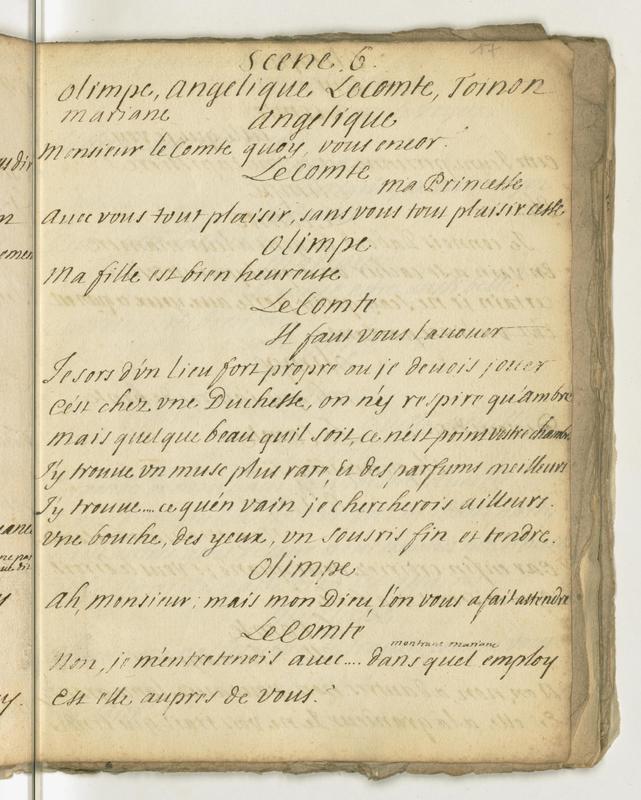 17
Scene. 6.
olimpe, angelique Lecomte, Toinon
mariane
angelique
monsieur le Comte quoy, vous encor.
Le comte
ma Princesse
Avec vous tout plaisir, sans vous tout plaisir cesse
olimpe
ma fille est bien heureuse
Le Comte
Il faut vous l'avouer
Je sors d'vn lieu fort propre ou je devois jouer
c'ést chez vne Duchesse, on n'éy respire qu'ambre
mais quelque beau quil soit, ce n'ést point vostre chambre
J'y trouue vn musc plus rare, Et des parfums meilleurs
J'y trouue.... ce qu'én vain je chercherois ailleurs.
vne bouche, des yeux, vn sousris fin et tendre.
olimpe
Ah, monsieur; mais mon Dieu, l'on vous a fait attendre
Le Comte
montrant mariane
Non, je m'entretenois avec.... dans quel employ
est elle aupres de vous.